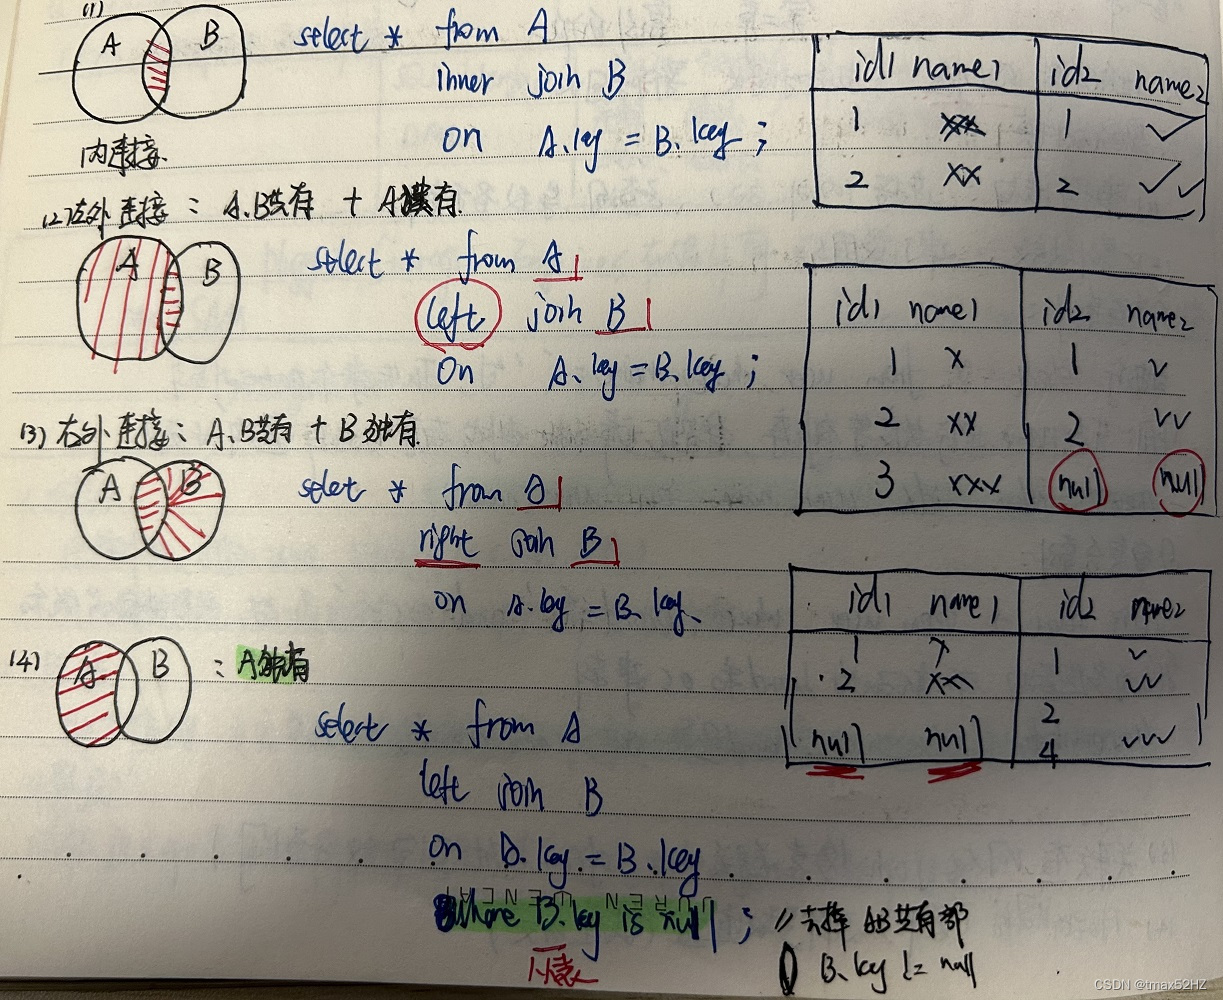 (1)
A B
select * from A
inner join B
on A.key = B.key ;
内连接.
id1 name1 id2 name2
1 xx 1 ✓
2 xx 2 ✓✓
(2) 左外连接 : A.B共有 + A独有.
A B
select * from A
left join B
On A.key = B.key ;
id1 name1 id2 name2
1 x 1 ✓
2 xx 2 ✓✓
3 xxx null null
(3) 右外连接 : A.B共有 + B独有
A B
select * from A
right join B
on A.key = B.key.
id1 name1 id2 name2
1 x 1 ✓
2 xx ✓✓
2
null null 4 ✓✓✓
(4) A B : A独有
select * from A
left join B
on A.key = B.key
where B.key is null ; //去掉 AB共有部
B.key != null
CSDN @tmax52HZ